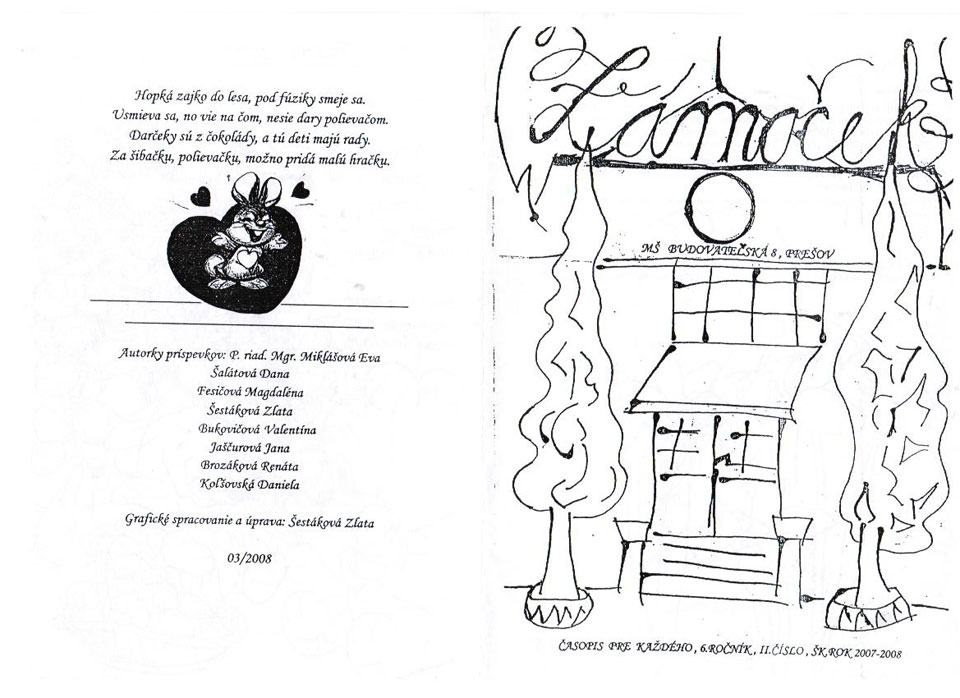 Hopká zajko do lesa, pod fúziky smeje sa.
Usmieva sa, no vie na čom, nesie dary polievačom.
Darčeky sú z čokolády, a tú deti majú rady.
Za šibačku, polievačku, možno pridá malú hračku.
Autorky príspevkov: P. riad. Mgr. Miklášová Eva
Šalátová Dana
Fesičová Magdaléna
Šestáková Zlata
Bukovičová Valentína
Jaščurová Jana
Brozáková Renáta
Kolšovská Daniela
Grafické spracovanie a úprava: Šestáková Zlata
03/2008
Zámoček
MŠ BUDOVATEĽSKÁ 8, PREŠOV
ČASOPIS PRE KAŽDÉHO, 6.ROČNÍK, II.ČÍSLO, ŠK.ROK 2007-2008